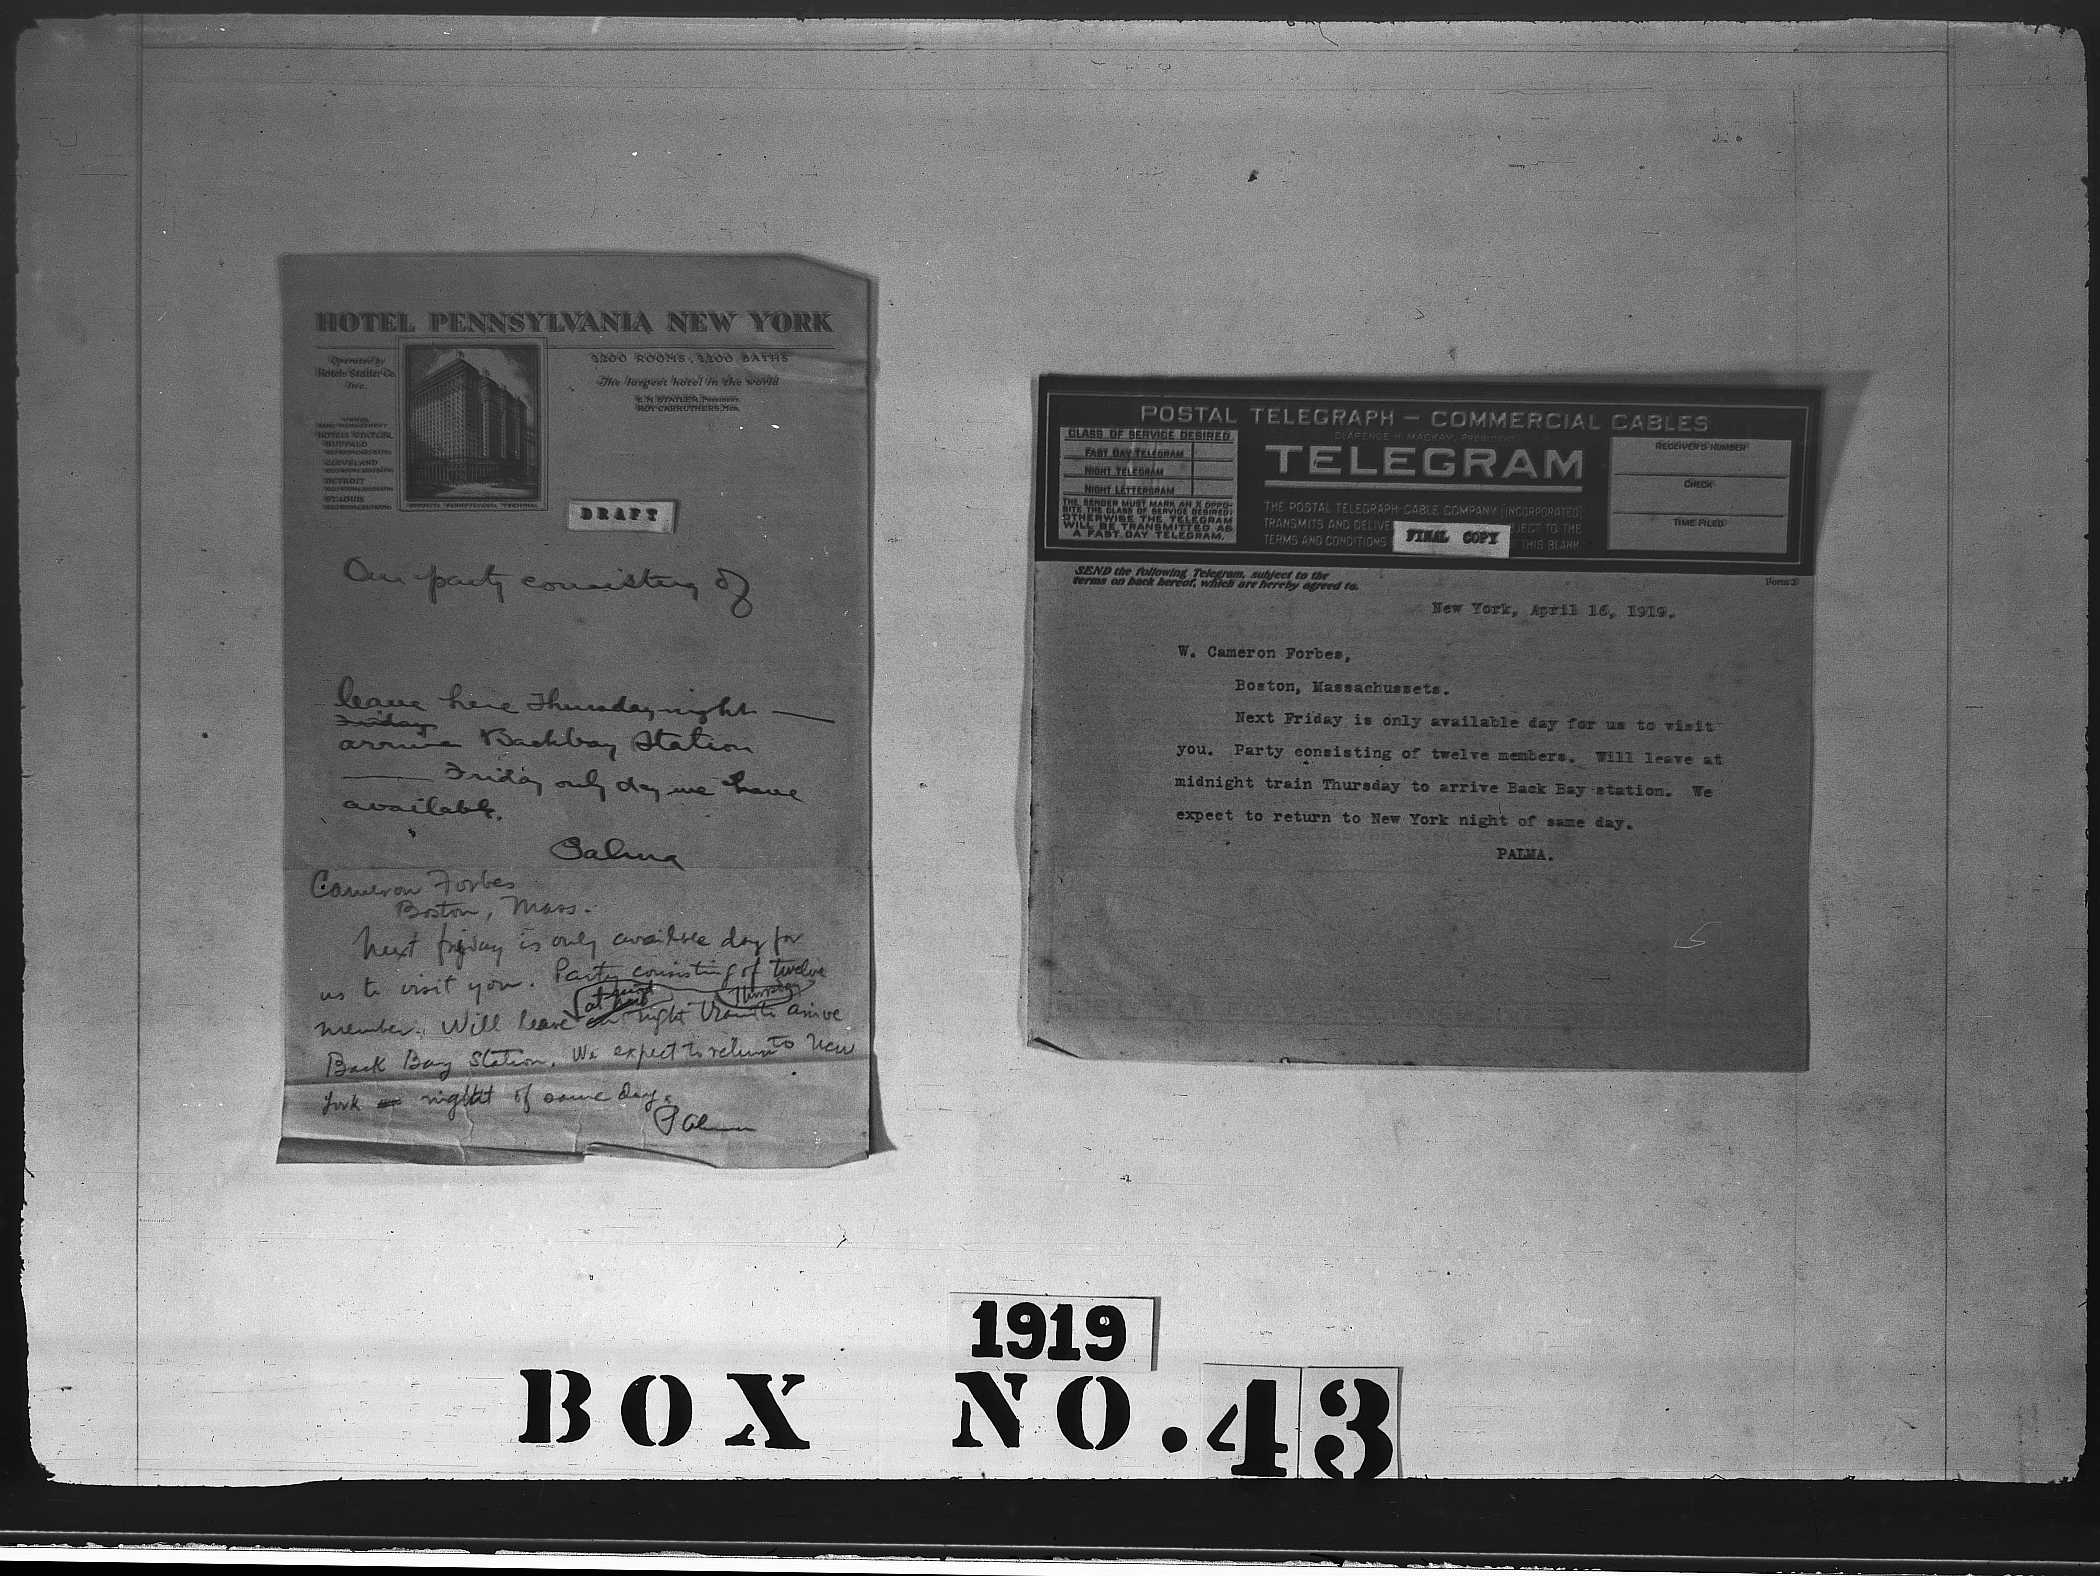 HOTEL PENNSYLVANIA NEW YORK
Operated by
Hotels Statler Co.
Inc.
2200 ROOMS, 2200 BATHS
The largest hotel in the world
E. M. STATLER, President
ROY CARRUTHERS, Mgr.
HOTELS STATLER
BUFFALO
CLEVELAND
DETROIT
ST. LOUIS
OPPOSITE PENNSYLVANIA TERMINAL
DRAFT
Our party consisting of
leave here Thursday night —
Friday
arrive Backbay Station
—— Friday only day we have
available.
Palma
Cameron Forbes
Boston, Mass.
Next friday is only availble day for
us to visit you. Party consisting of twelve
member. Will leave at night train Thursday to arrive
Back Bay Station. We expect to return to New
York night of same day.
Palma
POSTAL TELEGRAPH — COMMERCIAL CABLES
CLARENCE H. MACKAY, PRESIDENT
CLASS OF SERVICE DESIRED
FAST DAY TELEGRAM
NIGHT TELEGRAM
NIGHT LETTERGRAM
THE SENDER MUST MARK AN X OPPO-
SITE THE CLASS OF SERVICE DESIRED;
OTHERWISE THE TELEGRAM
WILL BE TRANSMITTED AS
A FAST DAY TELEGRAM.
TELEGRAM
THE POSTAL TELEGRAPH-CABLE COMPANY (INCORPORATED)
TRANSMITS AND DELIVE JECT TO THE
TERMS AND CONDITIONS THIS BLANK
FINAL COPY
RECEIVER'S NUMBER
CHECK
TIME FILED
SEND the following Telegram, subject to the
terms on back hereof, which are hereby agreed to.
Form 2
New York, April 16, 1919.
W. Cameron Forbes,
Boston, Massachussets.
Next Friday is only available day for us to visit
you. Party consisting of twelve members. Will leave at
midnight train Thursday to arrive Back Bay station. We
expect to return to New York night of same day.
PALMA.
5
1919
BOX NO. 43